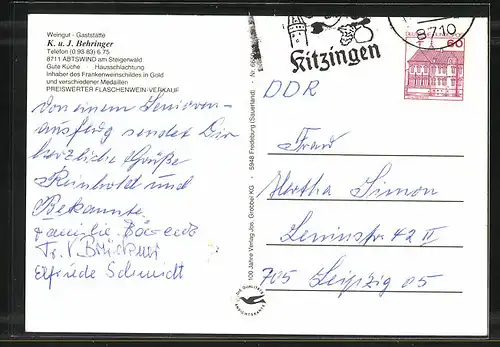 Weingut - Gaststätte
K. u. J. Behringer
Telefon (0 93 83) 6 75
8711 ABTSWIND am Steigerwald
Gute Küche · Hausschlachtung
Inhaber des Frankenweinschildes in Gold
und verschiedener Medaillen
PREISWERTER FLASCHENWEIN-VERKAUF
Von einem Senioren-
ausflug sendet Dir
herzliche Grüße
Reinhold und
Bekannte.
Familie
Fr.
Elfriede Schmidt
100 Jahre Verlag Jos. Grobbel KG · 5948 Fredeburg (Sauerland)
DIE QUALITÄTS
ANSICHTSKARTE
Kitzingen
8710
60
DDR
Frau
Hertha Simon
Leninstr. 42 II
705 Leipzig 05